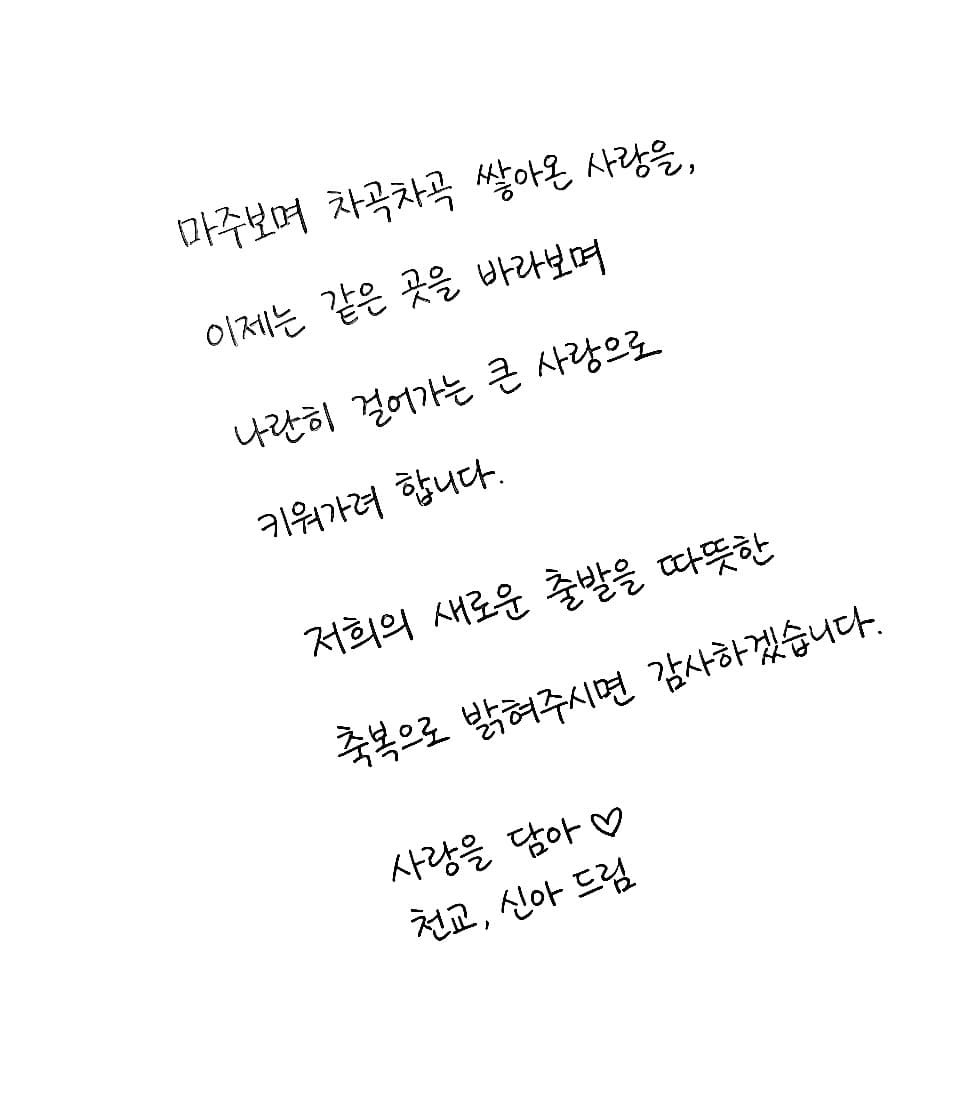 마주보며 차곡차곡 쌓아온 사랑을,
이제는 같은 곳을 바라보며
나란히 걸어가는 큰 사랑으로
키워가려 합니다.
저희의 새로운 출발을 따뜻한
축복으로 밝혀주시면 감사하겠습니다.
사랑을 담아 ♡
천교, 신아 드림